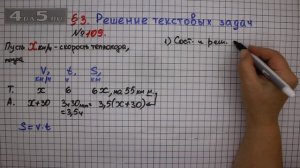 4OK5.RU
§3. Решение текстовых задач
№109.
Пусть x км/ч - скорость теплохода,
тогда
1) Сост. и реш.
V, t, S,
км/ч ч км
Т. x 6 6x, на 55 км м
А. x+30 3ч30мин= 3,5(x+30)
=3,5ч
S=v·t